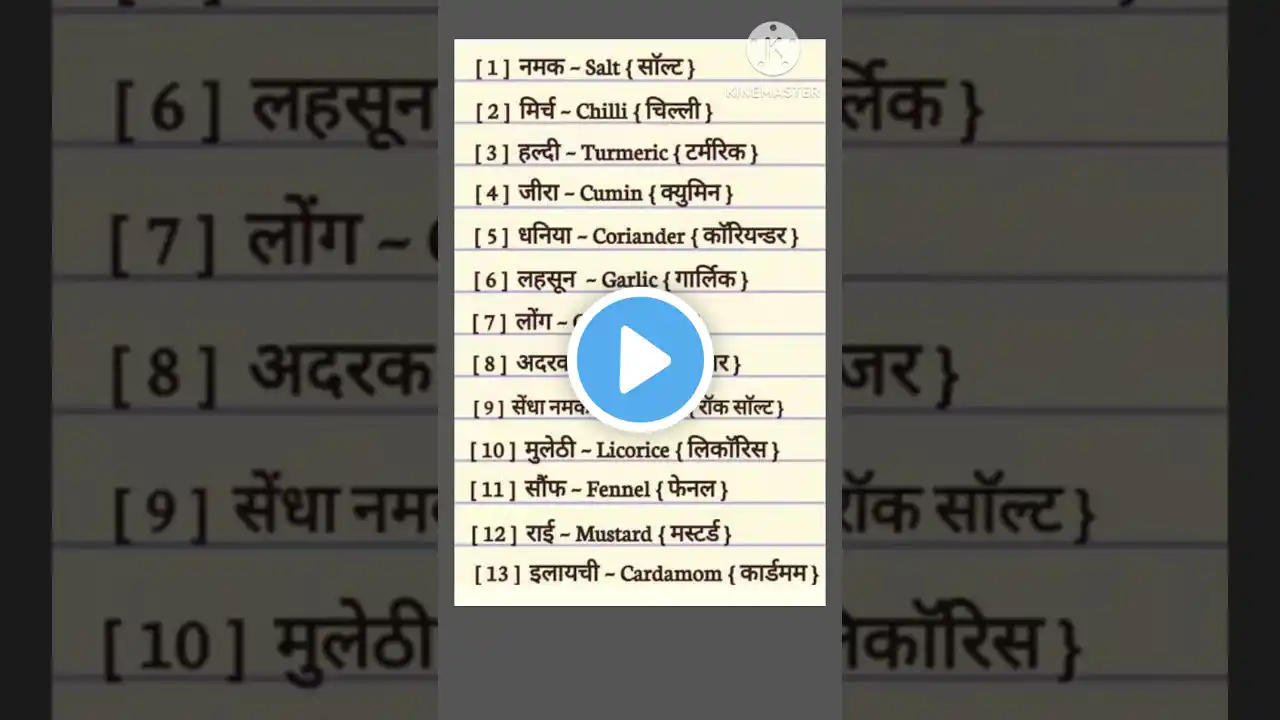 KINEMASTER
[ 1 ] नमक ~ Salt { सॉल्ट }
[ 2 ] मिर्च ~ Chilli { चिल्ली }
[ 3 ] हल्दी ~ Turmeric { टर्मरिक }
[ 4 ] जीरा ~ Cumin { क्युमिन }
[ 5 ] धनिया ~ Coriander { कॉरियन्डर }
[ 6 ] लहसून ~ Garlic { गार्लिक }
[ 7 ] लोंग ~
[ 8 ] अदरक
[ 9 ] सेंधा नमक { रॉक सॉल्ट }
[ 10 ] मुलेठी ~ Licorice { लिकॉरिस }
[ 11 ] सौंफ ~ Fennel { फेनल }
[ 12 ] राई ~ Mustard { मस्टर्ड }
[ 13 ] इलायची ~ Cardamom { कार्डमम }
[ 6 ] लहसून
[ 7 ] लोंग ~
[ 8 ] अदरक
[ 9 ] सेंधा रॉक सॉल्ट }
[ 10 ] मुलेठी